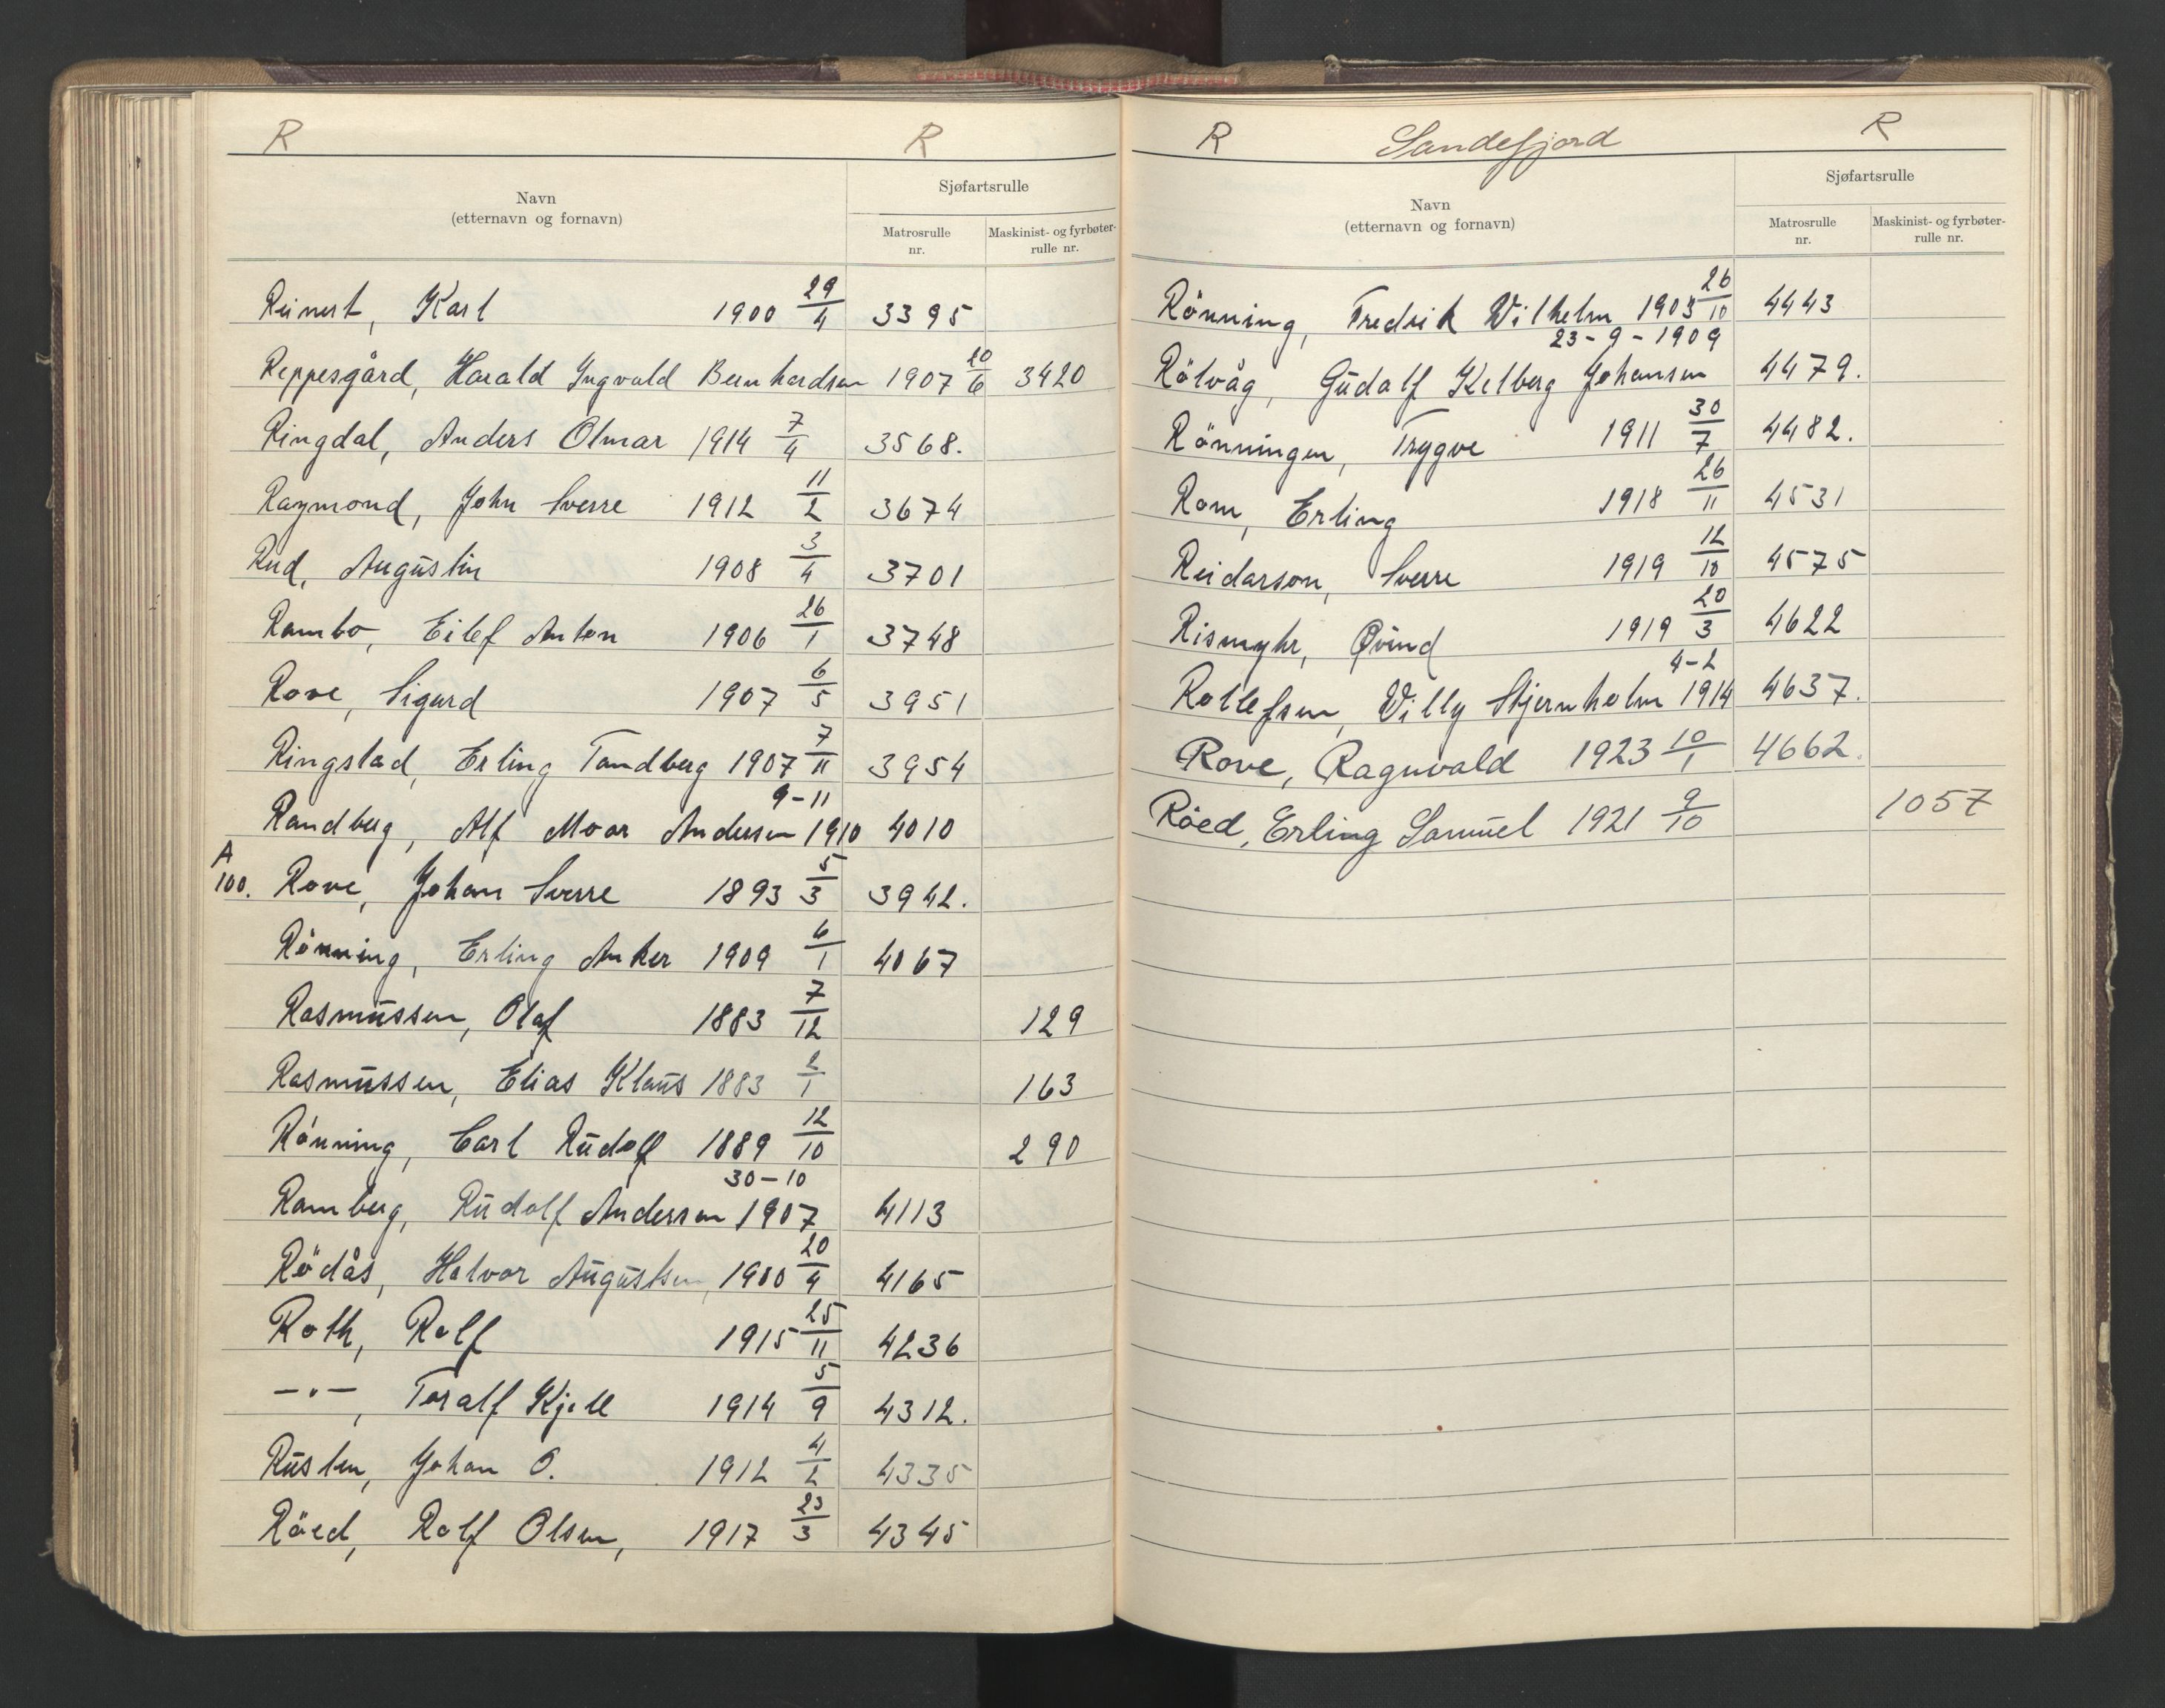 R R
Sjøfartsrulle
Navn
(etternavn og fornavn)
Matrosrulle
nr.
Maskinist- og fyrbøter-
rulle nr.
Reinert, Karl 1900 29/4 3395
Reppesgård, Harald Ingvald Bernhardsen 1907 20/6 3420
Ringdal, Anders Olmar 1914 7/4 3568.
Raymond, John Sverre 1912 11/2 3674
Rud, Augustin 1908 3/4 3701
Rambo, Eilef Anton 1906 26/1 3748
Rove, Sigurd 1907 6/5 3951
Ringstad, Erling Tandberg 1907 7/11 3954
9-11
Randberg, Alf Moar Andersen 1910 4010
A
100. Rove, Johan Sverre 1893 5/3 3942.
Rönning, Erling Anker 1909 6/1 4067
Rasmussen, Olaf 1883 7/12 129
Rasmussen, Elias Klaus 1883 2/1 163
Rönning, Carl Rudolf 1889 12/10 290
30-10
Ramberg, Rudolf Andersen 1907 4113
Rödås, Halvor Augustsen, 1900 20/4 4165
Roth, Rolf 1915 25/11 4236
-"-, Toralf Kjell 1914 5/9 4312.
Rusten, Johan O. 1912 4/2 4335
Röed, Rolf Olsen, 1917 23/3 4345
R Sandefjord R
Sjøfartsrulle
Navn
(etternavn og fornavn)
Matrosrulle
nr.
Maskinist- og fyrbøter-
rulle nr.
Rönning, Fredrik Vilhelm 1903 26/10 4443
23-9-1909
Rölvåg, Gudalf Kelberg Johansen 4479.
Rönningen, Trygve 1911 30/7 4482.
Rom, Erling 1918 26/11 4531
Reidarson, Sverre 1919 12/10 4575
Rismyhr, Øvind 1919 20/3 4622
4-2
Rollefsen, Villy Stjernholm 1914 4637.
Rove, Ragnvald 1923 10/1 4662.
Röed, Erling Samuel 1921 9/10 1057